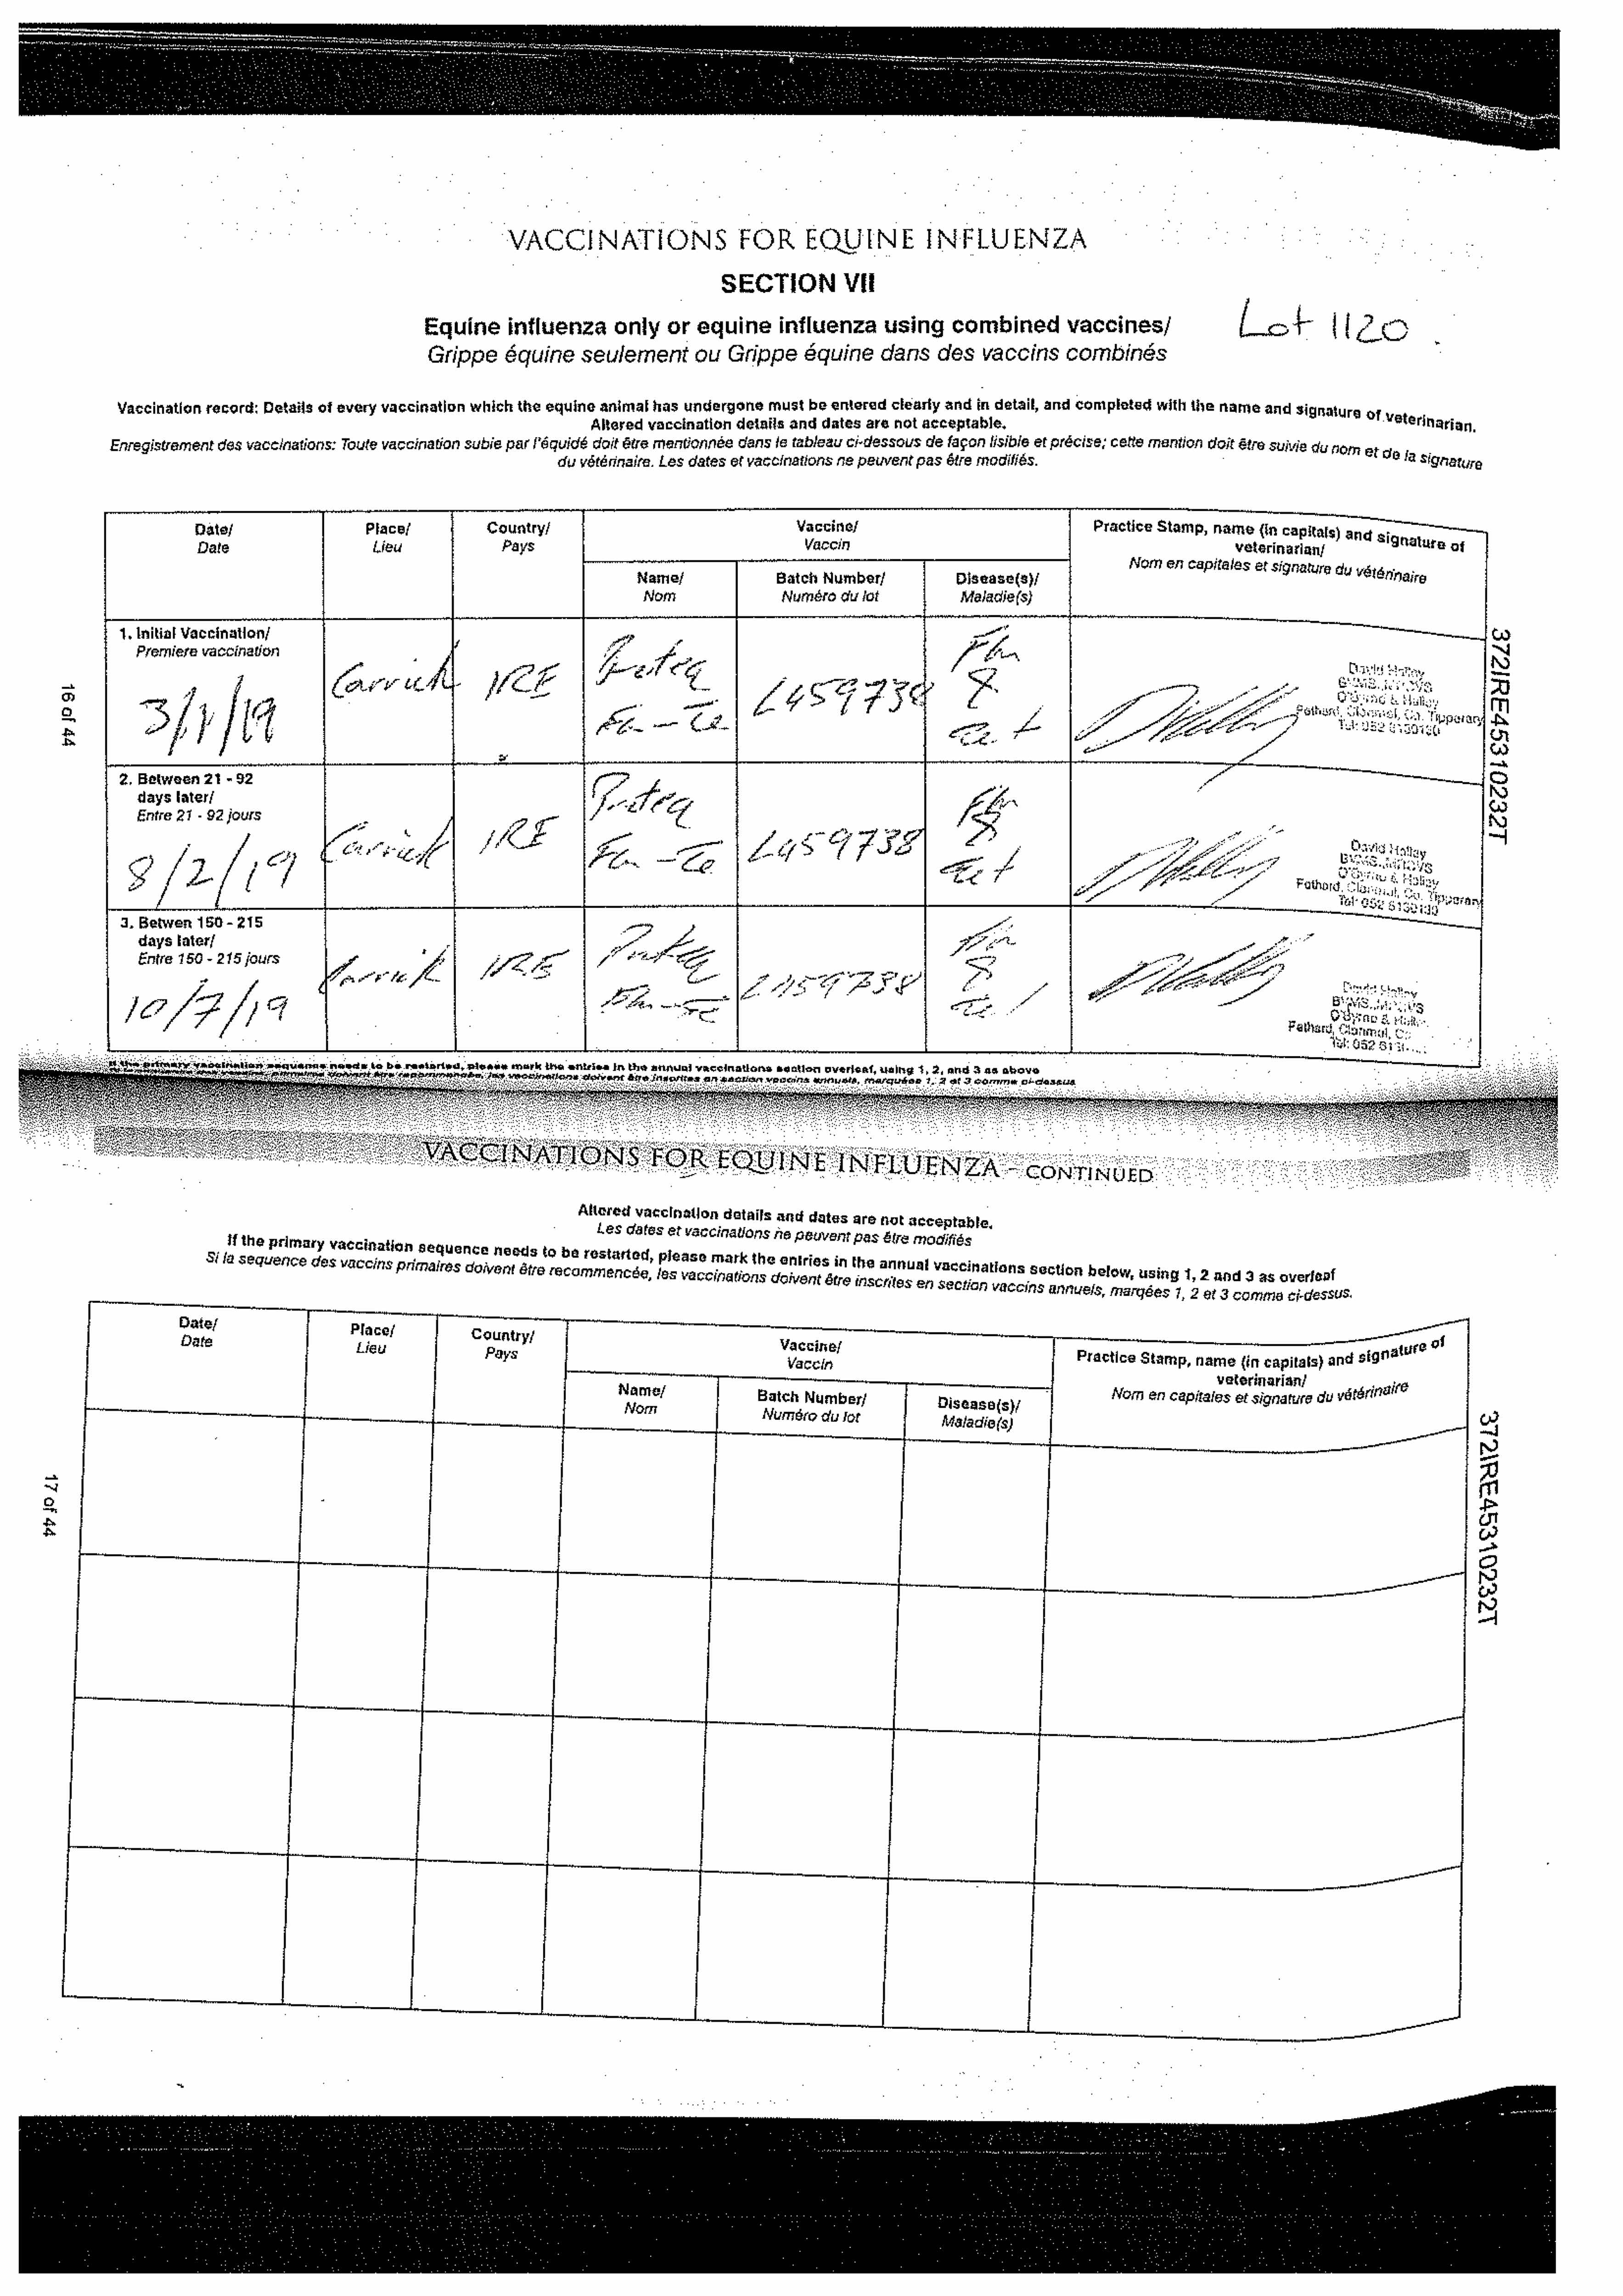 VACCINATIONS FOR EQUINE INFLUENZA
SECTION VII
Equine influenza only or equine influenza using combined vaccines/
Lot 1120.
Grippe équine seulement ou Grippe équine dans des vaccins combinés
Vaccination record: Details of every vaccination which the equine animal has undergone must be entered clearly and in detail, and completed with the name and signature of veterinarian.
Altered vaccination details and dates are not acceptable.
Enregistrement des vaccinations: Toute vaccination subie par l'équidé doit être mentionnée dans le tableau ci-dessous de façon lisible et précise; cette mention doit être suivie du nom et de la signature
du vétérinaire. Les dates et vaccinations ne peuvent pas être modifiés.
Date/
Date
Place/
Lieu
Country/
Pays
Vaccine/
Vaccin
Name/
Nom
Batch Number/
Numéro du lot
Disease(s)/
Maladie(s)
Practice Stamp, name (in capitals) and signature of
veterinarian/
Nom en capitales et signature du vétérinaire
1. Initial Vaccination/
Premiere vaccination
3/1/19
Carrick
IRE
Proteq
Flu-Te
L459738
Flu
&
Tet
David Halley
O'Byrne & Halley
Fethard, Clonmel, Co. Tipperary
Tel: 052 6130130
2. Between 21 - 92
days later/
Entre 21 - 92 jours
8/2/19
Carrick
IRE
Proteq
Flu-Te
L459738
Flu
&
Tet
David Halley
O'Byrne & Halley
Fethard, Clonmel, Co. Tipperary
Tel: 052 6130130
3. Betwen 150 - 215
days later/
Entre 150 - 215 jours
10/7/19
Carrick
IRE
Proteq
Flu-Te
L459738
Flu
&
Tet
David Halley
O'Byrne & Halley
Fethard, Clonmel, C
Tel: 052 613
If the primary vaccination sequence needs to be restarted, please mark the entries in the annual vaccinations section overleaf, using 1, 2, and 3 as above
les vaccinations doivent être inscrites en section vaccins annuels, marquées 1, 2 et 3 comme ci-dessus
16 of 44
372IRE45310232T
VACCINATIONS FOR EQUINE INFLUENZA - CONTINUED
Altered vaccination details and dates are not acceptable.
Les dates et vaccinations ne peuvent pas être modifiés
If the primary vaccination sequence needs to be restarted, please mark the entries in the annual vaccinations section below, using 1, 2 and 3 as overleaf
Si la sequence des vaccins primaires doivent être recommencée, les vaccinations doivent être inscrites en section vaccins annuels, marqées 1, 2 et 3 comme ci-dessus.
Date/
Date
Place/
Lieu
Country/
Pays
Vaccine/
Vaccin
Name/
Nom
Batch Number/
Numéro du lot
Disease(s)/
Maladie(s)
Practice Stamp, name (in capitals) and signature of
veterinarian/
Nom en capitales et signature du vétérinaire
17 of 44
372IRE45310232T